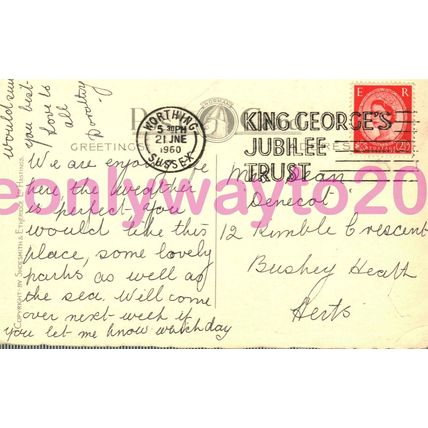 would suit
you best
Love to
all
Dorothy
NORMAN
P C
GREETINGS
ADDRESS
WORTHING
5-30PM
21 JNE
1960
SUSSEX
KING GEORGE'S
JUBILEE
TRUST
E R
2½
COPYRIGHT BY SHOESMITH & ETHERIDGE LTD HASTINGS.
We are enjoying
here the weather
is perfect. You
would like this
place, some lovely
parks as well as
the sea. Will come
over next week if
you let me know which day
Mrs Dean
Denecot
12 Rumble Crescent
Bushey Heath
Herts
eonlywayto20